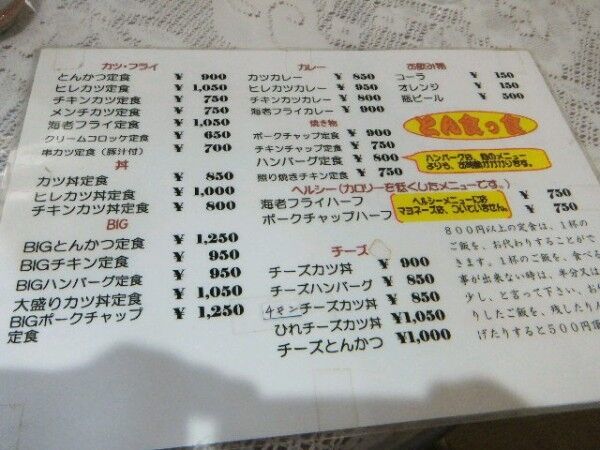 カツ・フライ
とんかつ定食 ¥ 900
ヒレカツ定食 ¥ 1,050
チキンカツ定食 ¥ 750
メンチカツ定食 ¥ 750
海老フライ定食 ¥ 1,050
クリームコロッケ定食 ¥ 650
串カツ定食（豚汁付） ¥ 700
丼
カツ丼定食 ¥ 850
ヒレカツ丼定食 ¥ 1,000
チキンカツ丼定食 ¥ 800
BIG
BIGとんかつ定食 ¥ 1,250
BIGチキン定食 ¥ 950
BIGハンバーグ定食 ¥ 950
大盛りカツ丼定食 ¥ 1,050
BIGポークチャップ定食 ¥ 1,250
カレー
カツカレー ¥ 850
ヒレカツカレー ¥ 950
チキンカツカレー ¥ 800
海老フライカレー ¥ 900
焼き物
ポークチャップ定食 ¥ 900
チキンチャップ定食 ¥ 750
ハンバーグ定食 ¥ 800
照り焼きチキン定食 ¥ 750
ヘルシー（カロリーを低くしたメニューです。）
海老フライハーフ ¥ 750
ポークチャップハーフ ¥ 750
ヘルシーメニューに
マヨネーズは、ついていません。
チーズ
チーズカツ丼 ¥ 900
チーズハンバーグ ¥ 850
チキンチーズカツ丼 ¥ 850
ひれチーズカツ丼 ¥1,050
チーズとんかつ ¥1,000
お飲み物
コーラ ¥ 150
オレンジ ¥ 150
瓶ビール ¥ 500
とん食っ食
ハンバーグは、他のメニュー
よりも、お時間がかかります。
８００円以上の定食は、１杯の
ご飯を、お代わりすることがで
きます。１杯のご飯を、食べる
事が出来ない時は、半分又は
少し、と言って下さい。お
りしたご飯を、残したり
げたりすると５００円